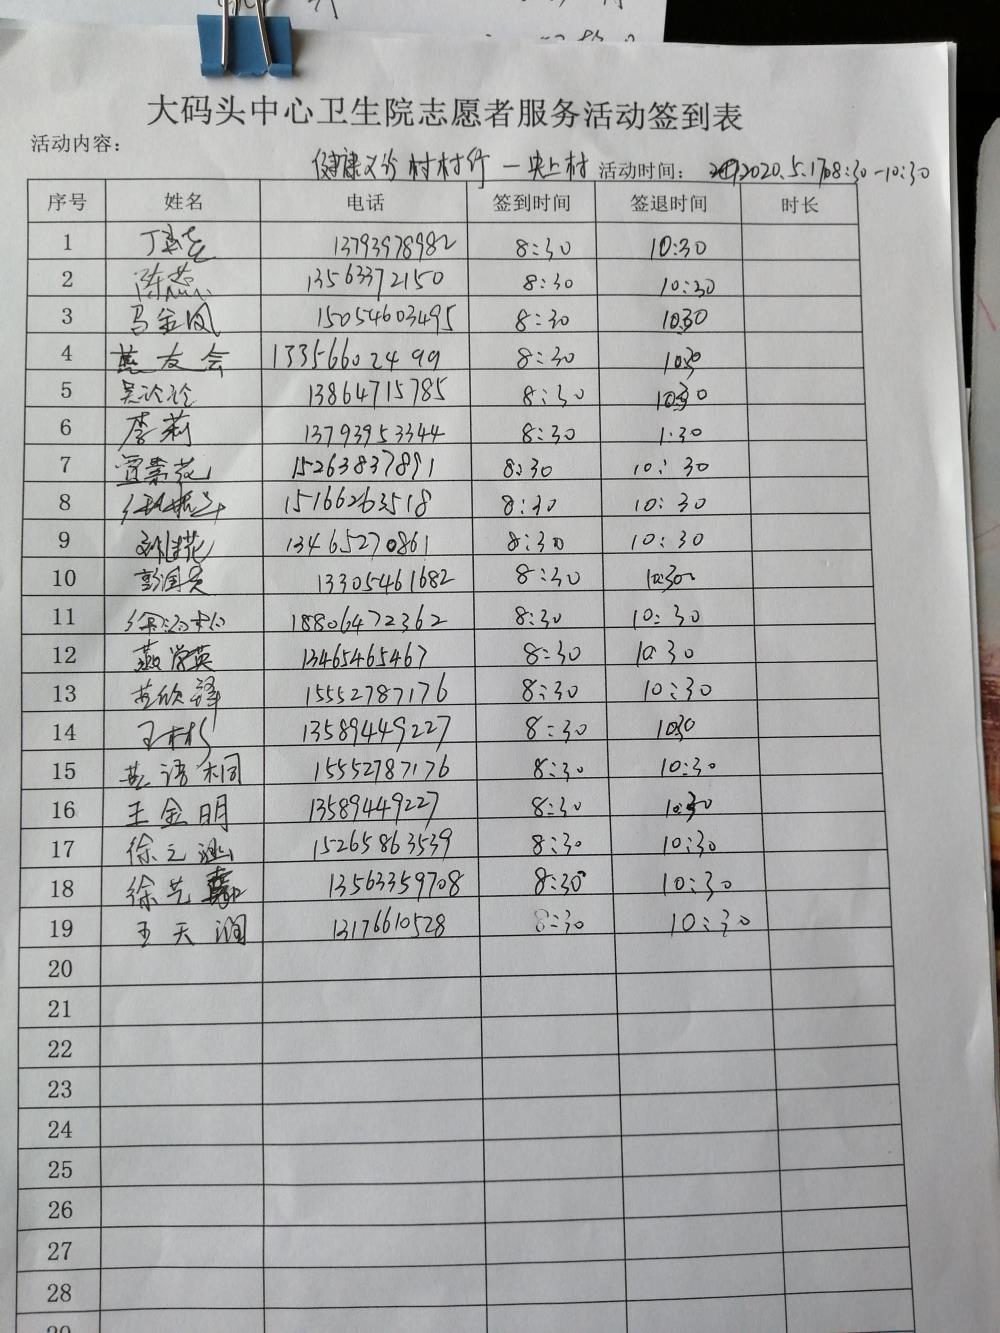 大码头中心卫生院志愿者服务活动签到表
活动内容： 健康义诊村村行一央上村 活动时间： 2020.5.17 08:30-10:30
序号 姓名 电话 签到时间 签退时间 时长
1 13793978982 8:30 10:30
2 陈燕 13563372150 8:30 10:30
3 马金凤 15054603495 8:30 10:30
4 燕友会 13356602499 8:30 10:30
5 吴论论 13864715785 8:30 10:30
6 李莉 13793953344 8:30 1:30
7 贾荣花 15263837891 8:30 10:30
8 15166263518 8:30 10:30
9 13465270861 8:30 10:30
10 彭国英 13305461682 8:30 10:30
11 18806472362 8:30 10:30
12 燕学英 13465465467 8:30 10:30
13 15552787176 8:30 10:30
14 王彬 13589449227 8:30 10:30
15 燕语桐 15552787176 8:30 10:30
16 王金明 13589449227 8:30 10:30
17 徐之涵 15265863539 8:30 10:30
18 徐艺 13563359708 8:30 10:30
19 王天润 13176610528 8:30 10:30
20
21
22
23
24
25
26
27
28
29